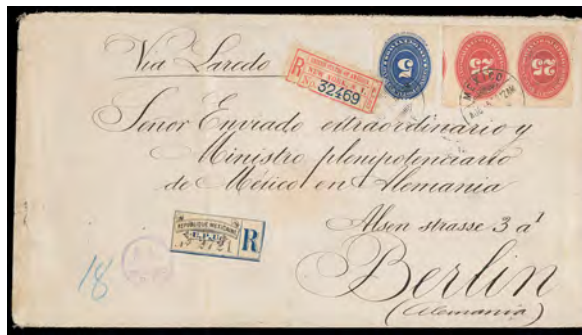 Via Laredo
UNITED STATES OF AMERICA
R NEW YORK, N. Y.
No. 32469
5
25
25
MEXICO
Señor Enviado extraordinario y
Ministro plenipotenciario
de México en Alemania
Alsen strasse 3 a¹
Berlin
(Alemania)
REPUBLIQUE MEXICAINE
R
18